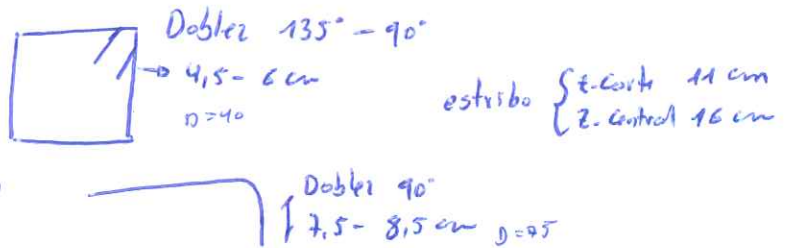 Doblez 135° - 90°
→ 4,5 - 6 cm
D=40
estribo { z. corte 11 cm
z. central 16 cm
Doblez 90°
7,5 - 8,5 cm D=75